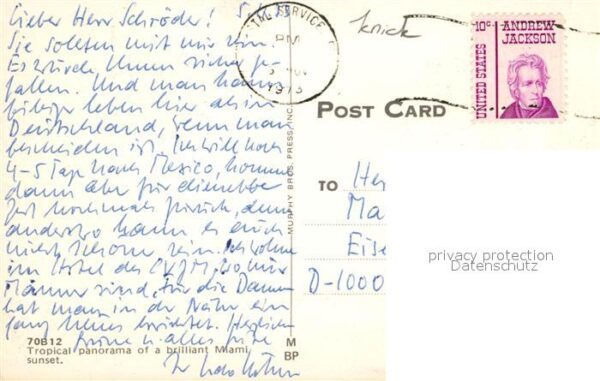 Lieber Herr Schröder!
Sie sollten mit mir sein.
Es würde Ihnen sicher ge-
fallen. Und man kann
billiger leben hier als in
Deutschland, wenn man
bescheiden ist. Ich will noch
4-5 Tage nach Mexico, komme
dann aber für
nochmals zurück, denn
anderswo kann es auch
nicht schöner sein. Ich wohne
im Hotel des CVJM, wo nur
Männer sind, für die Damen
hat man in der Nähe ein
ganz neues errichtet. Herzliche
Grüße u. alles Gute
Ihr
70B12
Tropical panorama of a brilliant Miami
sunset.
MURPHY BROS. PRESS, INC.
M
BP
SERVICE
PM
1973
knick
POST CARD
UNITED STATES
10c
ANDREW
JACKSON
TO
He
Ma
Eise
D-1000
privacy protection
Datenschutz